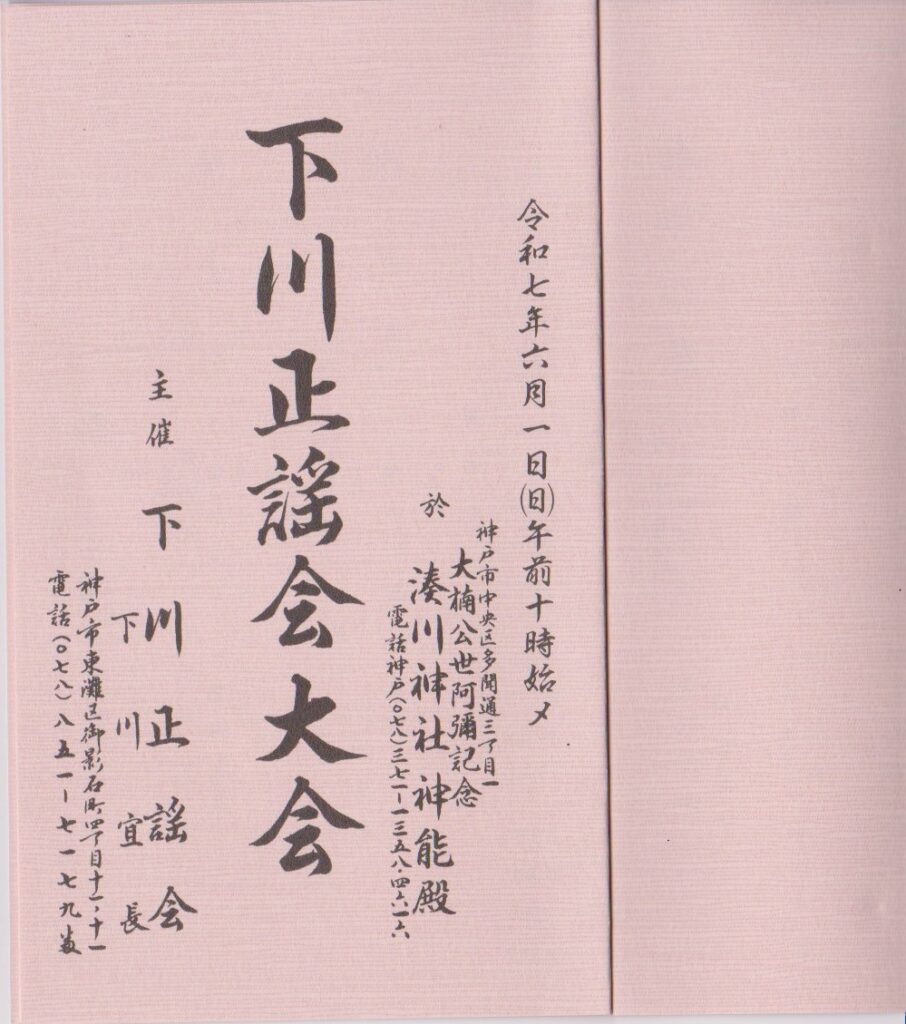 令和七年六月一日(日)午前十時始メ
神戸市中央区多聞通三丁目一
大楠公世阿彌記念
於 湊川神社神能殿
電話神戸(〇七八)三七一ー一三五八・四六一六
下川正謡会大会
主催 下川正謡会
下川宜長
神戸市東灘区御影石町四丁目十一ー十一
電話(〇七八)八五一ー七一七九